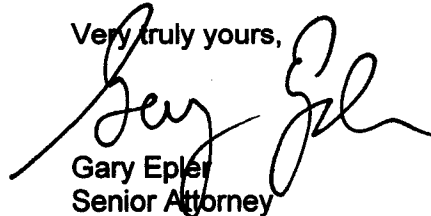 Very truly yours,
Gary Epler
Gary Epler
Senior Attorney